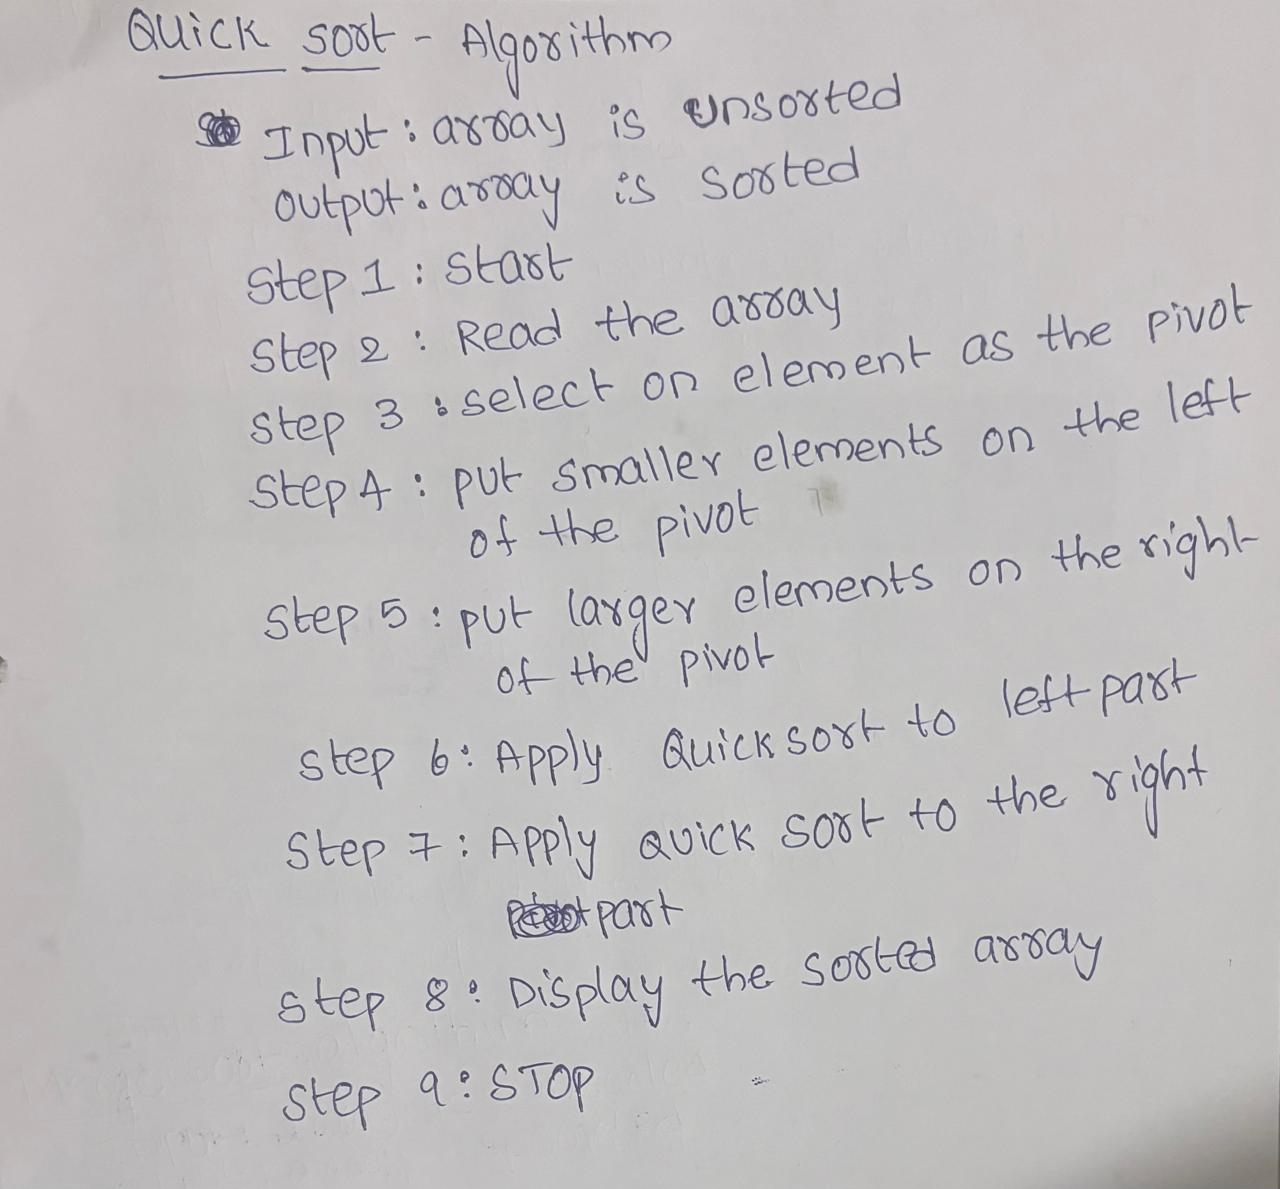 Quick sort - Algorithm
Input : array is unsorted
output : array is sorted
Step 1 : Start
Step 2 : Read the array
Step 3 : select on element as the pivot
Step 4 : put smaller elements on the left
of the pivot
Step 5 : put larger elements on the right
of the pivot
Step 6 : Apply Quick sort to left part
Step 7 : Apply Quick sort to the right
part
Step 8 : Display the sorted array
Step 9 : STOP